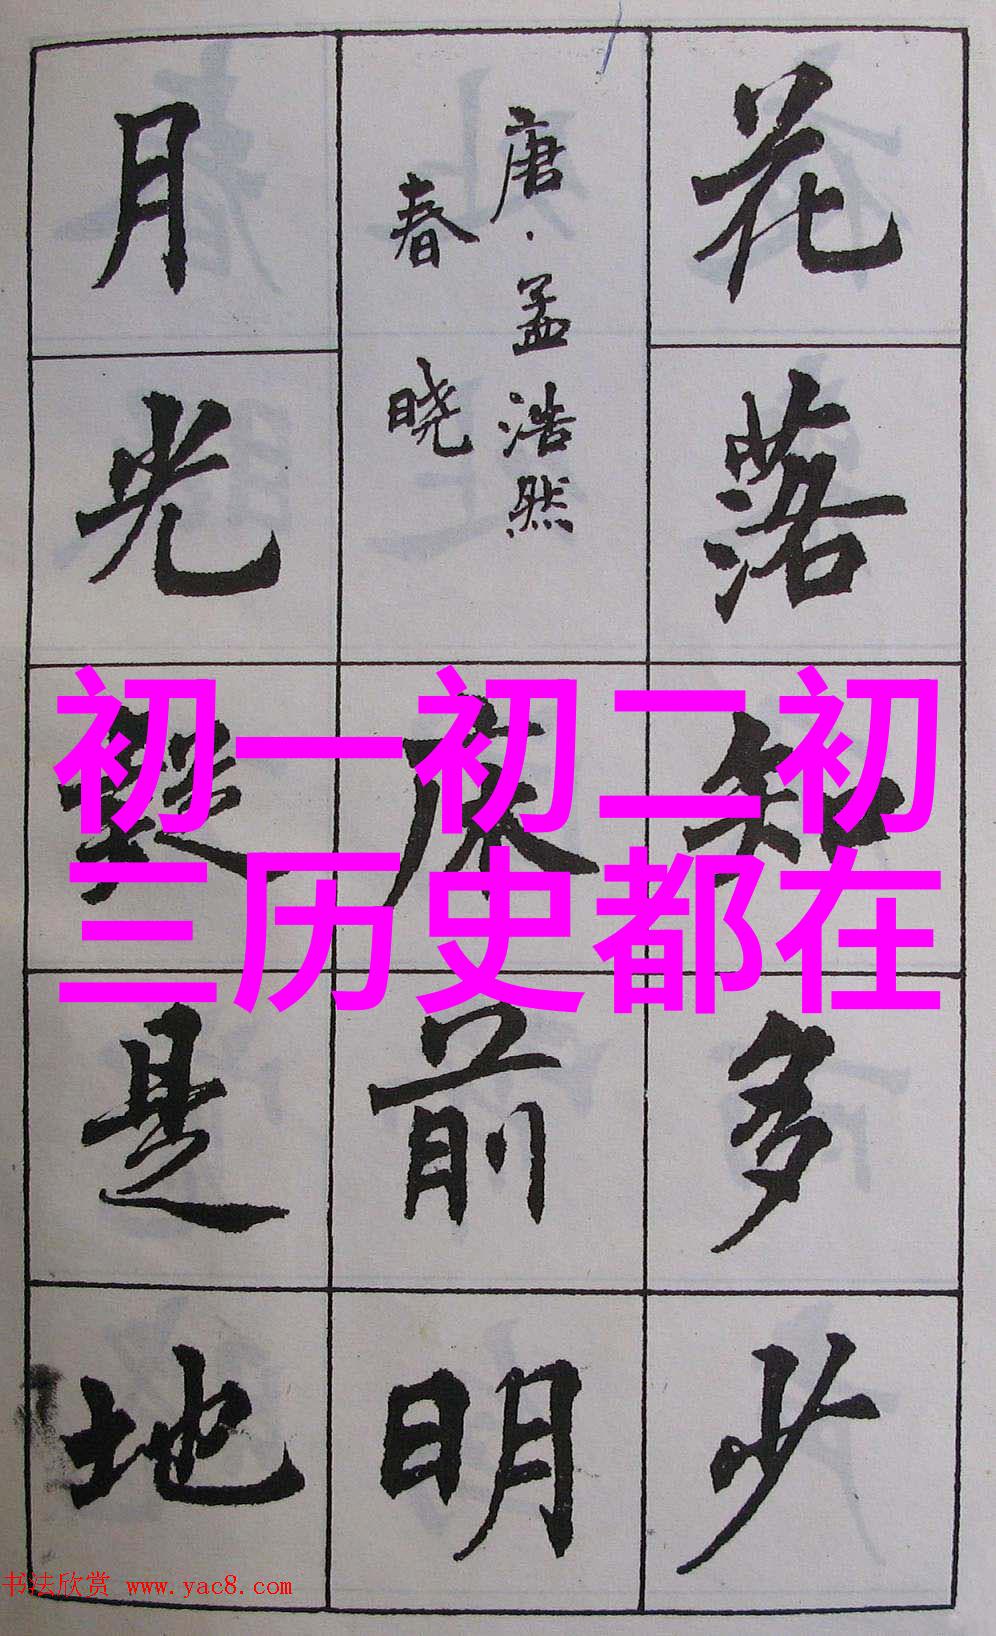 花落知多少
唐·孟浩然
春晓
床前明
月光疑是地
初一初二初
三历史都在
书法欣赏 www.yac8.com